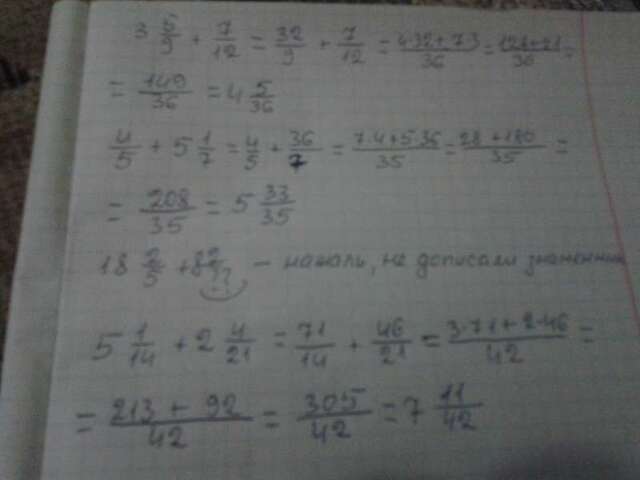 3 5/9 + 7/12 = 32/9 + 7/12 = 4·32+7·3/36 = 128+21/36 =
= 149/36 = 4 5/36
4/5 + 5 1/7 = 4/5 + 36/7 = 7·4+5·36/35 = 28+180/35 =
= 208/35 = 5 33/35
18 2/5 + 8 - нажаль, не дописали знаменник
5 1/14 + 2 4/21 = 71/14 + 46/21 = 3·71+2·46/42 =
= 213+92/42 = 305/42 = 7 11/42